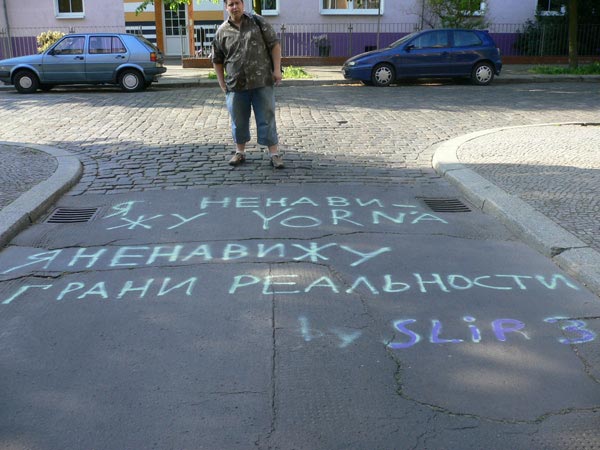 Я НЕНАВИ-
ЖУ YORNA
Я НЕНАВИЖУ
ГРАНИ РЕАЛЬНОСТИ
by SLiR 3